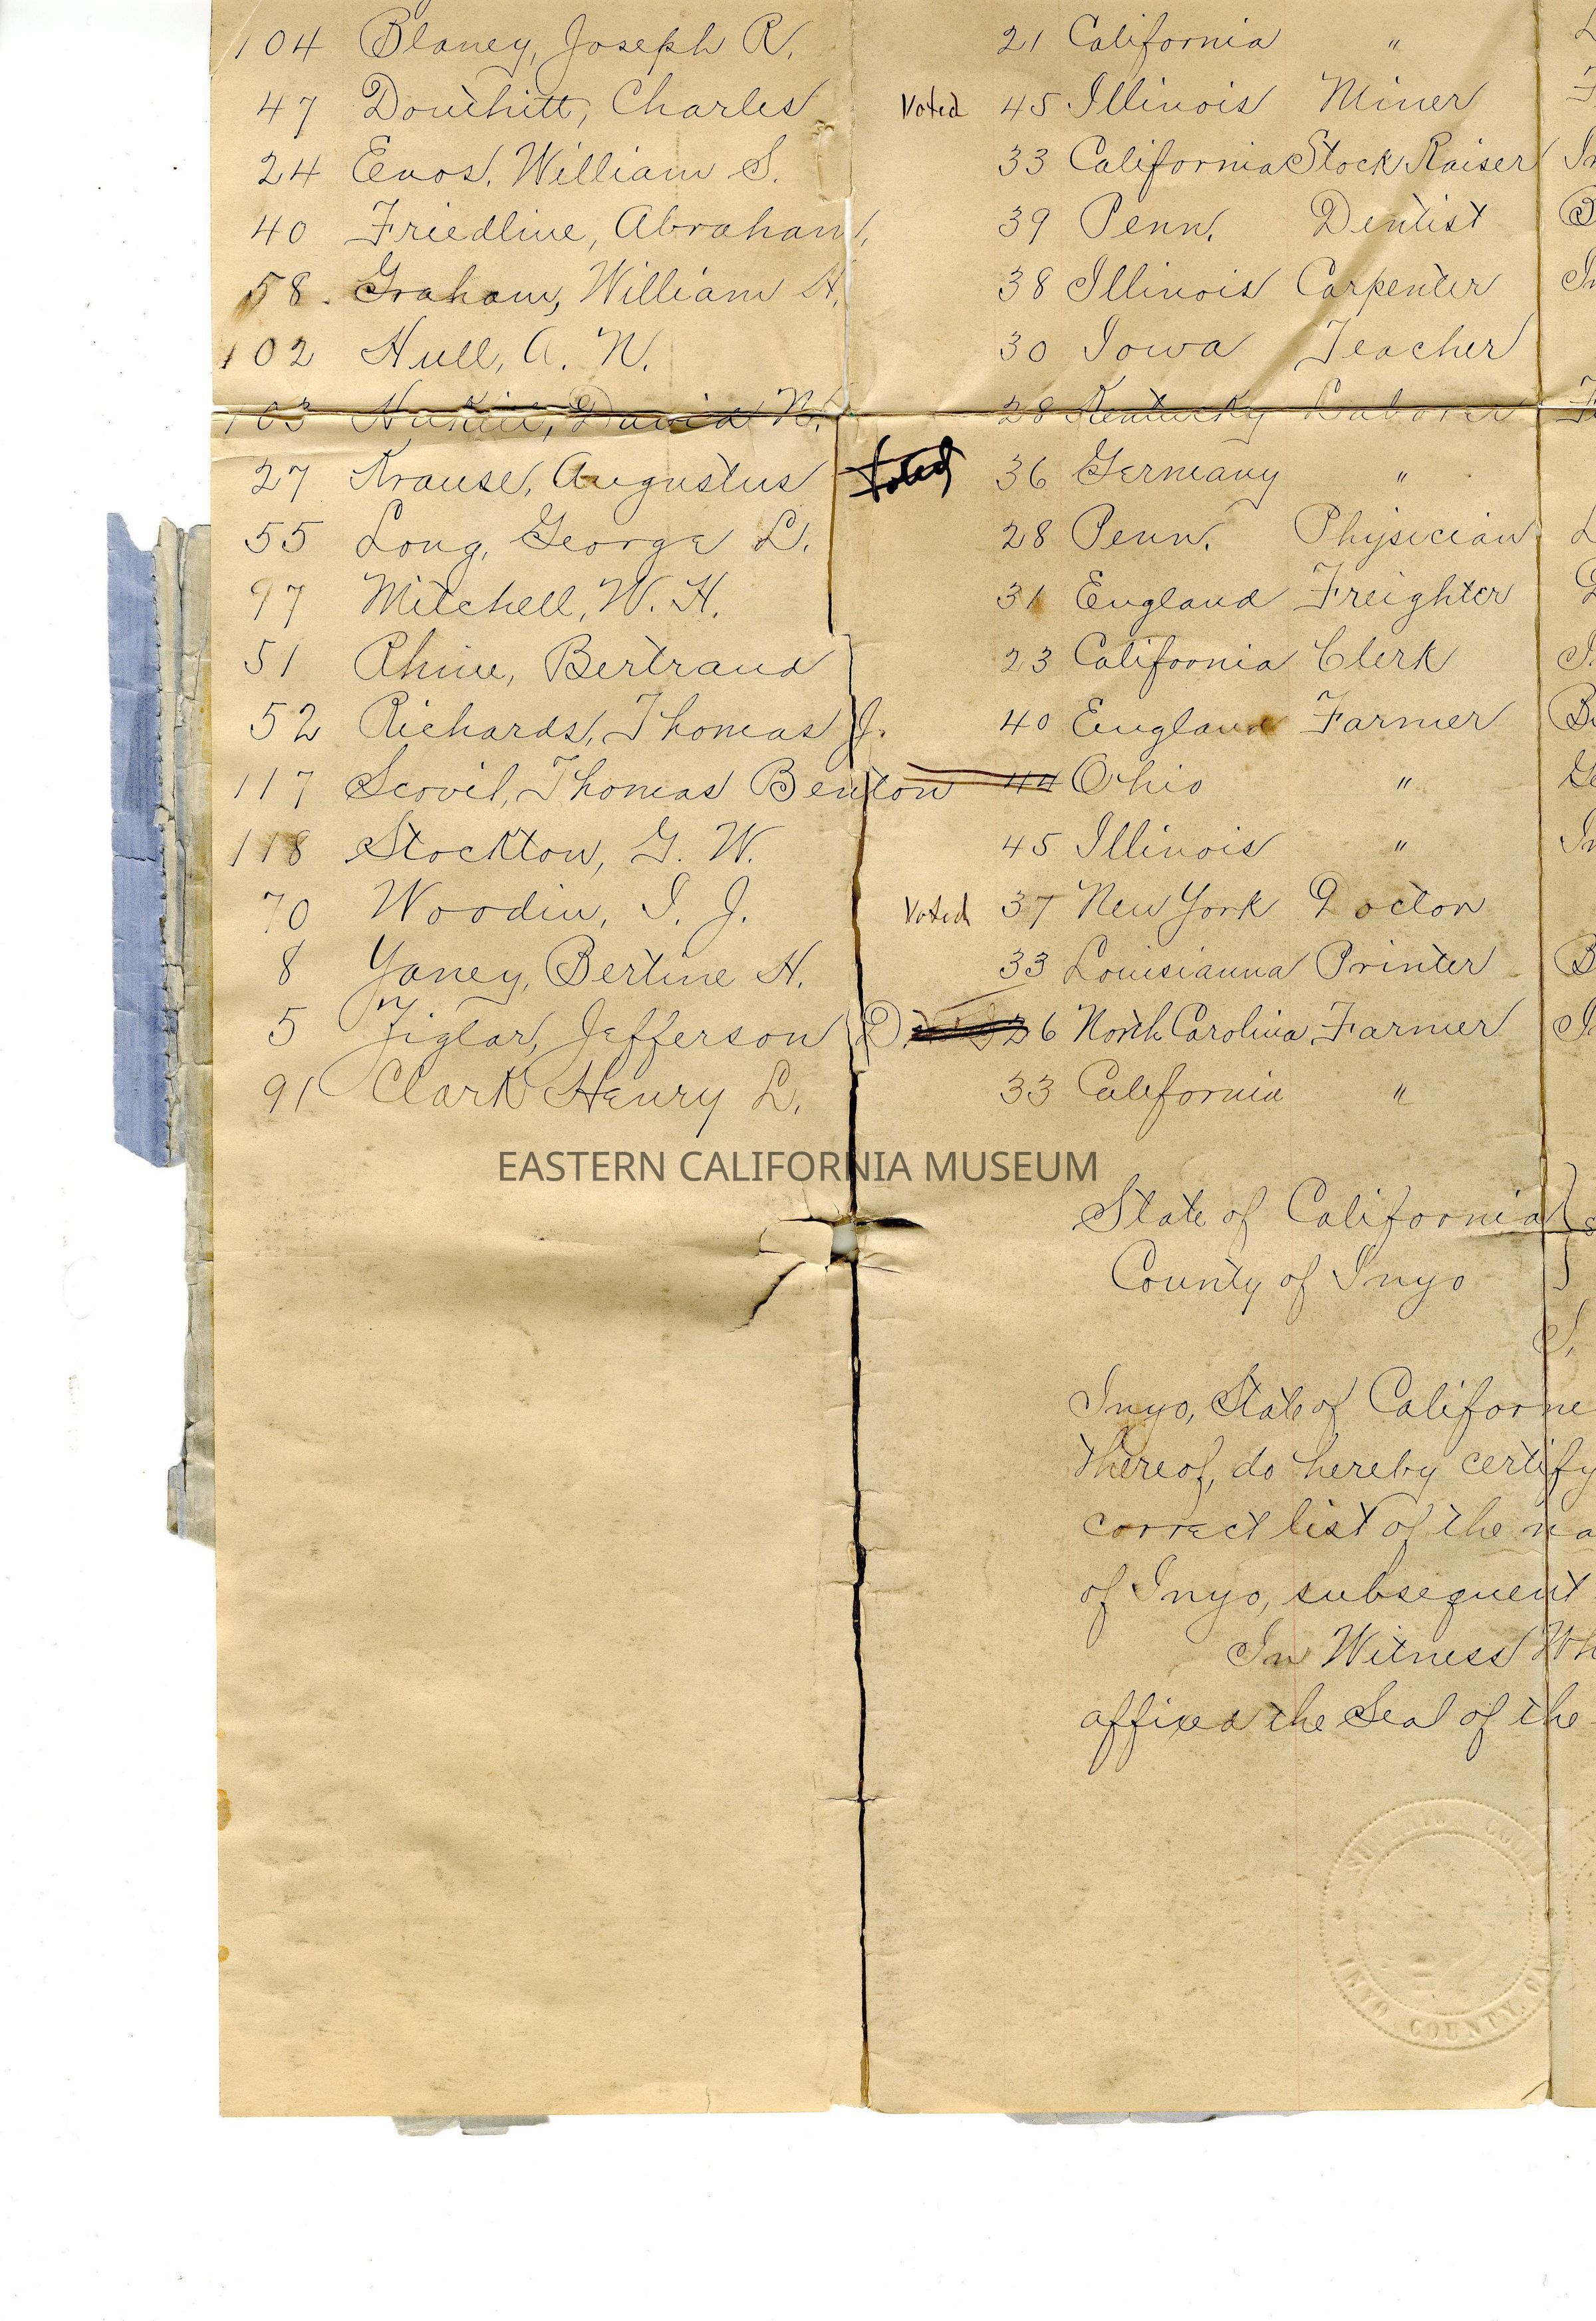 104 Blaney, Joseph R. 21 California "
47 Douthitt, Charles Voted 45 Illinois Miner
24 Enos, William S. 33 California Stock Raiser In
40 Friedline, Abraham. 39 Penn. Dentist
58. Graham, William H. 38 Illinois Carpenter In
102 Hull, A. N. 30 Iowa Teacher
103 David N. 28 Kentucky Laborer
27 Krause, Augustus Voted 36 Germany "
55 Long, George L. 28 Penn. Physician
97 Mitchell, W. H. 31 England Freighter
51 Rhine, Bertrand 23 California Clerk
52 Richards, Thomas J. 40 England Farmer
117 Scovil, Thomas Benton 44 Ohio "
118 Stockton, G. W. 45 Illinois " In
70 Woodin, I. J. Voted 37 New York Doctor
8 Yaney, Bertine H. 33 Louisianna Printer B
5 Ziglar, Jefferson D. 26 North Carolina Farmer
91 Clark Henry L. 33 California "
EASTERN CALIFORNIA MUSEUM
State of California }
County of Inyo
Inyo, State of Californi
thereof, do hereby certify
correct list of the na
of Inyo, subsequent
In Witness Wh
affixed the Seal of the
INYO COUNTY, CAL